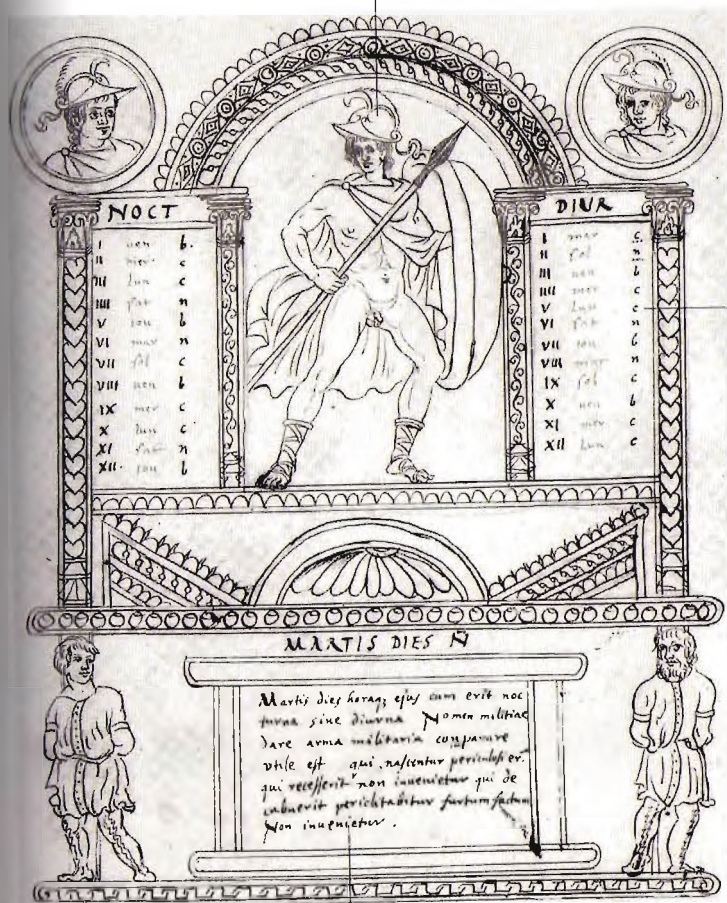 NOCT
I uen b.
II mer c
III lun c
IIII sat n
V iou b
VI mar n
VII sol c
VIII uen b
IX mer c
X lun c
XI sat n
XII. iou b
DIUR
I mar c
II sol n
III uen b
IIII mer c
V lun c
VI sat n
VII iou b
VIII mar n
IX sol c
X uen b
XI mer c
XII lun c
MARTIS DIES N
Martis dies horaq; ejus cum erit noc
turna siue diurna Nomen militiae
dare arma militaria conparare
vtile est qui nascentur periculosi er.
qui recesserit non inuenietur qui de
cubuerit periclitabitur furtum factum
Non inuenietur.